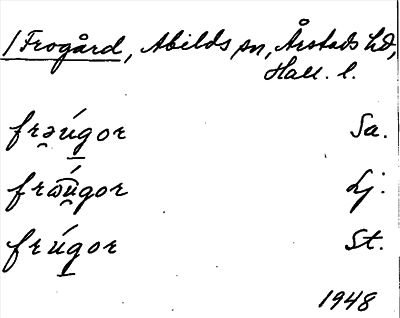 /Frogård, Abilds sn, Årstads hd,
Hall. l.
frə̯úgor Sa.
frω̯úgor Lj.
frúgor St.
1948